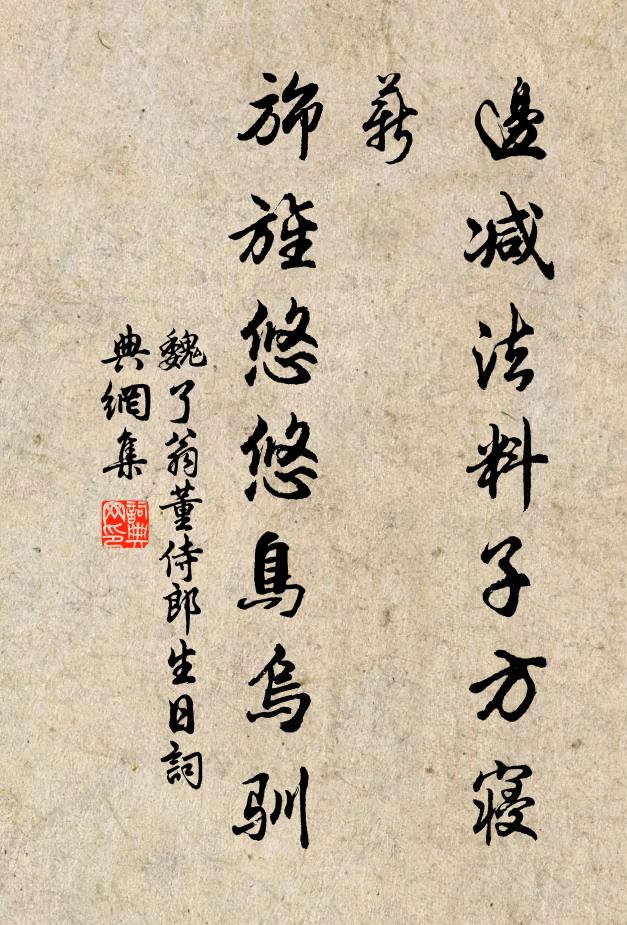 邊減法料子方寢
薪
旆旌悠悠鳥烏馴
魏了翁董侍郎生日詞
典網集
詞典網印